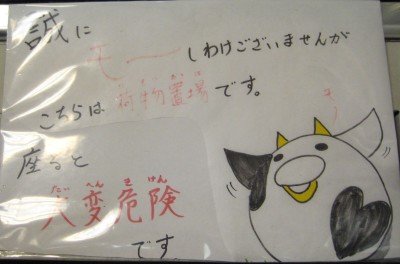 誠に
モーしわけございませんが
こちらは荷物置場です。
モー
座ると
大変危険
たいへんきけん
です